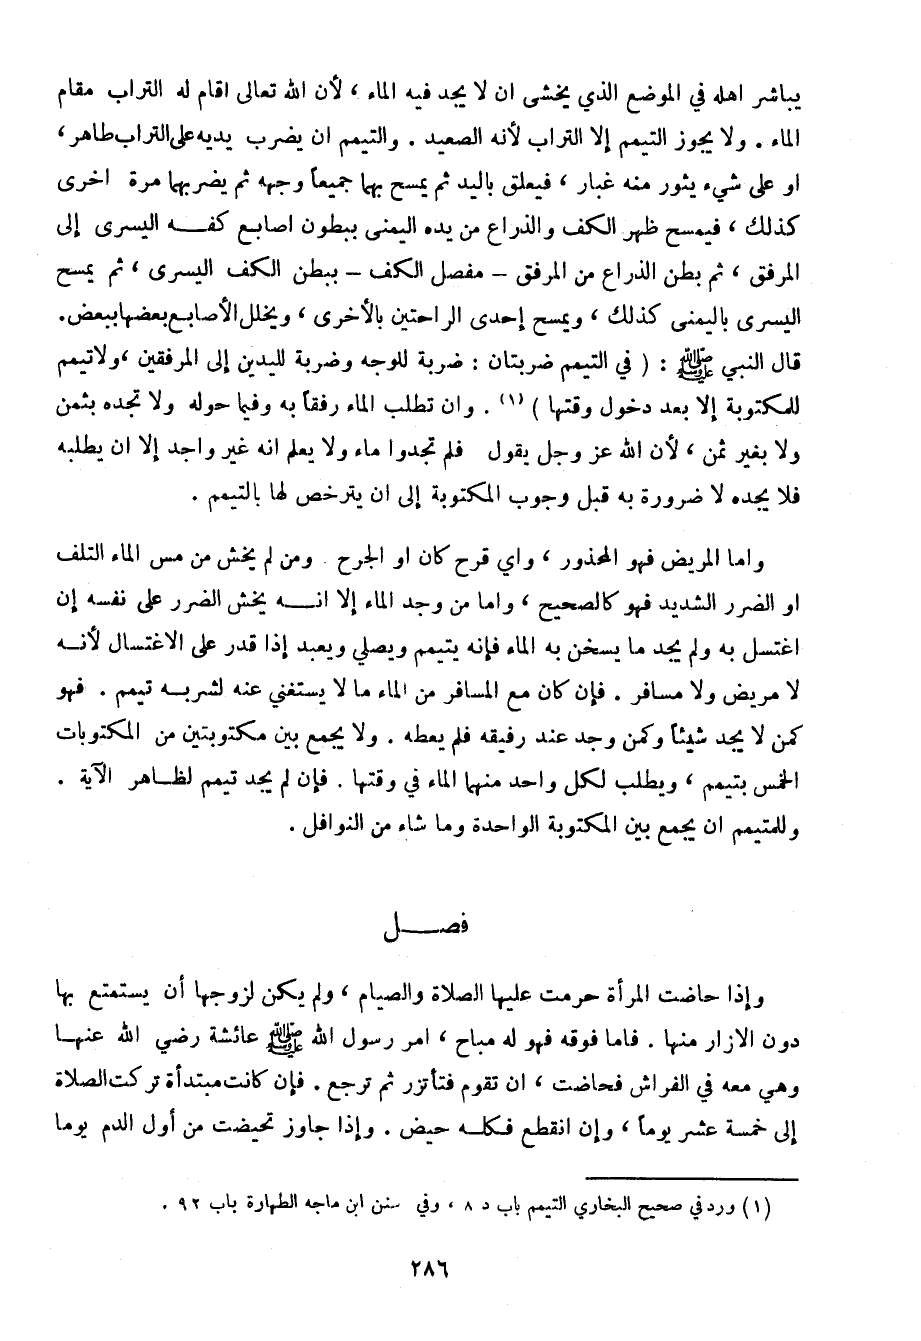 يباشر اهله في الموضع الذي يخشى ان لا يجد فيه الماء ، لأن الله تعالى اقام له التراب مقام
الماء . ولا يجوز التيمم إلا التراب لأنه الصعيد . والتيمم ان يضرب يديه على التراب طاهر ،
او على شيء يثور منه غبار ، فيعلق باليد ثم يمسح بها جميعاً وجهه ثم يضربها مرة اخرى
كذلك ، فيمسح ظهر الكف والذراع من يده اليمنى ببطون اصابع كفـــه اليسرى إلى
المرفق ، ثم بطن الذراع من المرفق – مفصل الكف – ببطن الكف اليسرى ، ثم يمسح
اليسرى باليمنى كذلك ، ويمسح إحدى الراحتين بالأخرى ، ويخلل الأصابع بعضها ببعض.
قال النبي ﷺ : ( في التيمم ضربتان : ضربة للوجه وضربة لليدين إلى المرفقين ، ولا تيمم
للمكتوبة إلا بعد دخول وقتها ) (١) . وان تطلب الماء رفقاً به وفيما حوله ولا تجده بثمن
ولا بغير ثمن ، لأن الله عز وجل يقول فلم تجدوا ماء ولا يعلم انه غير واجد إلا ان يطلبه
فلا يجده لا ضرورة به قبل وجوب المكتوبة إلى ان يترخص لها بالتيمم .
واما المريض فهو المحذور ، واي قرح كان او الجرح . ومن لم يخش من مس الماء التلف
او الضرر الشديد فهو كالصحيح ، واما من وجد الماء إلا انـــه يخش الضرر على نفسه إن
اغتسل به ولم يجد ما يسخن به الماء فإنه يتيمم ويصلي ويعبد إذا قدر على الاغتسال لأنـــه
لا مريض ولا مسافر . فإن كان مع المسافر من الماء ما لا يستغني عنه لشربـــه تيمم . فهو
كمن لا يجد شيئاً وكمن وجد عند رفيقه فلم يعطه . ولا يجمع بين مكتوبتين من المكتوبات
الخمس بتيمم ، ويطلب لكل واحد منهما الماء في وقتها . فإن لم يجد تيمم لظــاهر الآية .
وللمتيمم ان يجمع بين المكتوبة الواحدة وما شاء من النوافل .
فصـــــل
وإذا حاضت المرأة حرمت عليها الصلاة والصيام ، ولم يكن لزوجها أن يستمتع بها
دون الازار منها . فاما فوقه فهو له مباح ، امر رسول الله ﷺ عائشة رضي الله عنهـــا
وهي معه في الفراش فحاضت ، ان تقوم فتأتزر ثم ترجع . فإن كانت مبتدأة تركت الصلاة
إلى خمسة عشر يوماً ، وإن انقطع فكلــه حيض . وإذا جاوز تحيضت من أول الدم يوما
(١) ورد في صحيح البخاري التيمم باب د ٨ ، وفي سنن ابن ماجه الطهارة باب ٩٢ .
٢٨٦